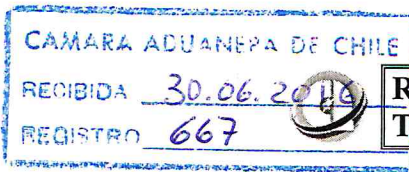 CAMARA ADUANERA DE CHILE
RECIBIDA 30.06.2016 R
REGISTRO 667 T